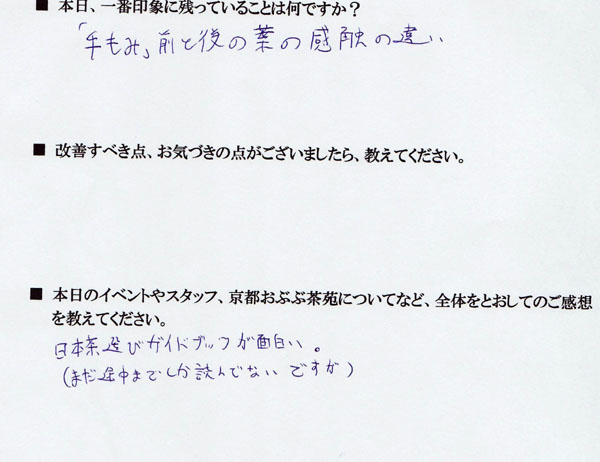 ■ 本日、一番印象に残っていることは何ですか？
「手もみ」前と後の葉の感触の違い
■ 改善すべき点、お気づきの点がございましたら、教えてください。
■ 本日のイベントやスタッフ、京都おぶぶ茶苑についてなど、全体をとおしてのご感想
を教えてください。
日本茶選びガイドブックが面白い。
(まだ途中までしか読んでないですが)